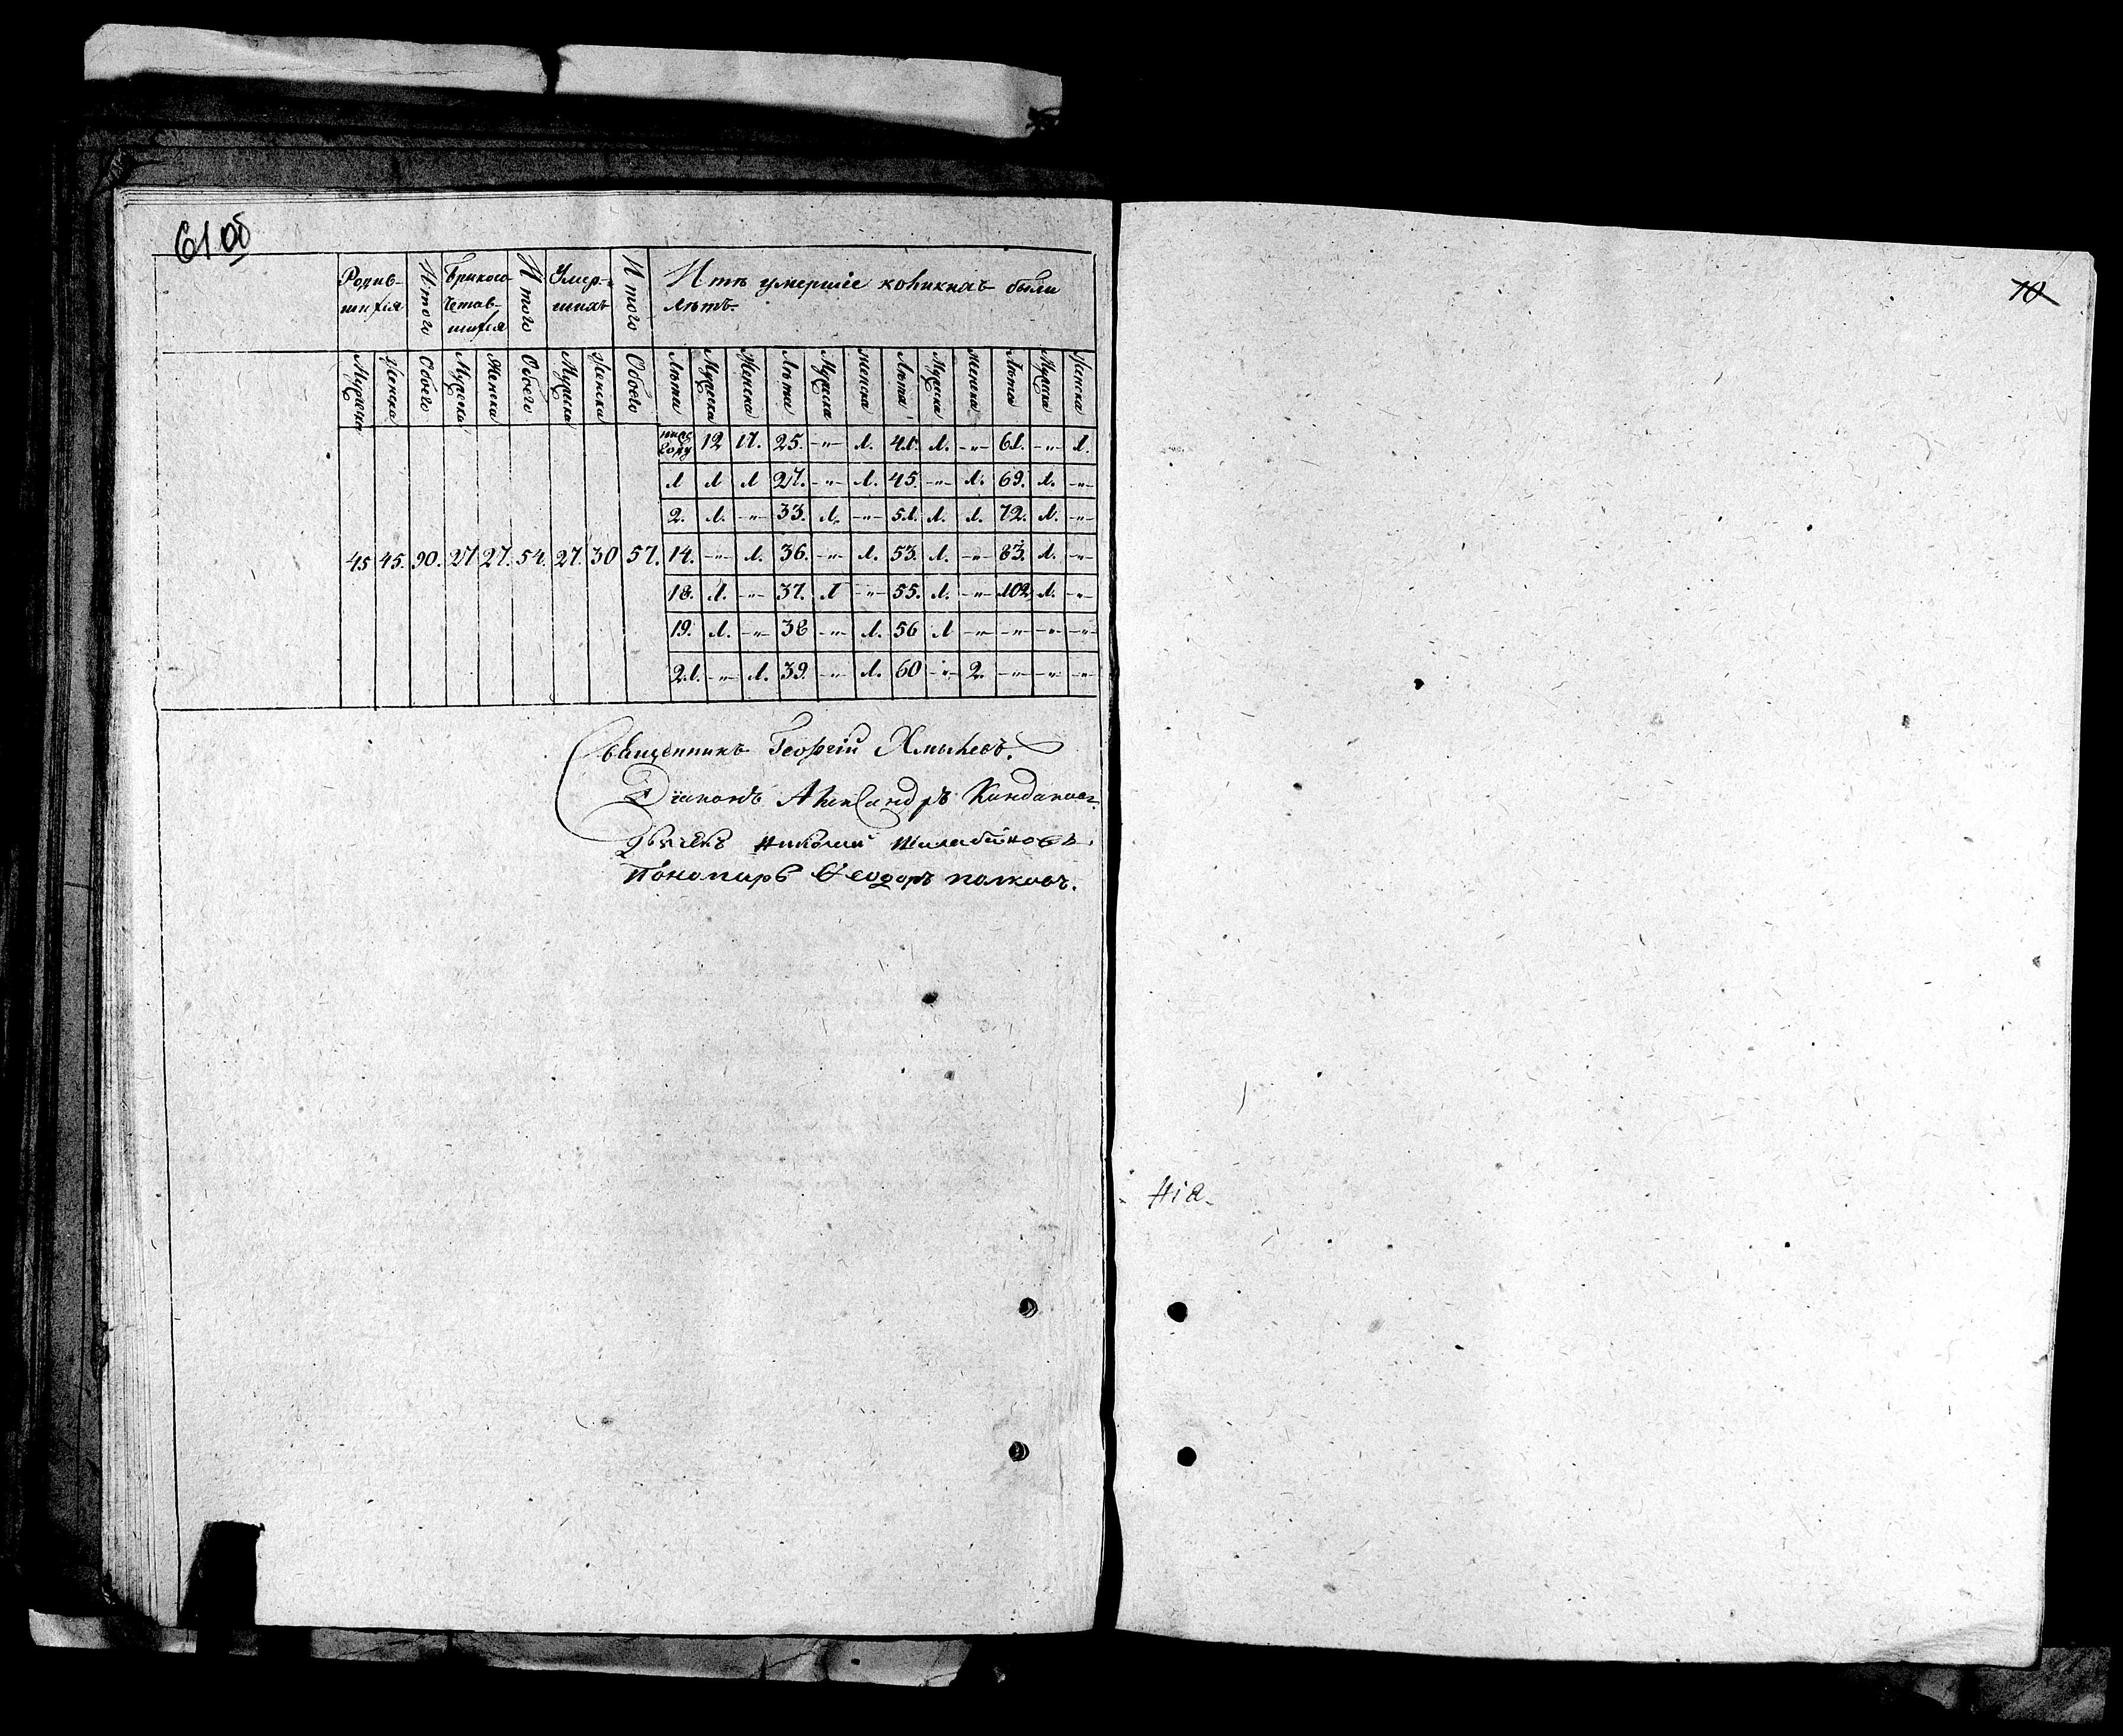 61 об
Родив- Итого Брикосо- Итого Умер- Итого И тѣ умершіе коликихъ были
шихся четав- шихъ лѣтъ.
шихся
Мужеска Женска Обоего Мужеска Женска Обоего Мужеска Женска Обоего Лѣта Мужеска Женска Лѣта Мужеска Женска Лѣта Мужеска Женска Лѣта Мужеска Женска
году 12 17. 25. -"- 1. 41. 1. -"- 61. -"- 1.
1 1 1 27. -"- 1. 45. -"- 1. 69. 1. -"-
2. 1. -"- 33. 1. -"- 51. 1. 1. 72. 1. -"-
45 45. 90. 27 27. 54. 27. 30 57. 14. -"- 1. 36. -"- 1. 53. 1. -"- 83. 1. -"-
18. 1. -"- 37. 1 -"- 55. 1. -"- 102. 1. -"-
19. 1. -"- 38 -"- 1. 56 1 -"- -"- -"- -"-
21. -"- 1. 39. -"- 1. 60 -"- 2. -"- -"- -"-
Священникъ Георгій Хмылевъ.
Діаконъ Александръ
Дьячекъ Николай
Пономарь Ѳеодоръ Полковъ.
10
нiя